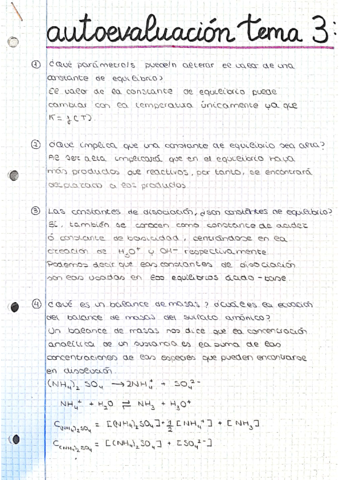 autoevaluación tema 3:
① ¿Qué parámetro/s pueden alterar el valor de una
constante de equilibrio?
El valor de la constante de equilibrio puede
cambiar con la temperatura únicamente ya que
K = f (T).
② ¿Qué implica que una constante de equilibrio sea alta?
Al ser alta implicará que en el equilibrio haya
más productos que reactivos, por tanto, se encontrará
desplazado a los productos.
③ Las constantes de disociación, ¿son constantes de equilibrio?
Sí, también se conocen como constante de acidez
o constante de basicidad, centrándose en la
creación de H₃O⁺ y OH⁻ respectivamente.
Podemos decir que las constantes de disociación
son las usadas en los equilibrios ácido-base.
④ ¿Qué es un balance de masas? ¿Cuál es la ecuación
del balance de masas del sulfato amónico?
Un balance de masas nos dice que la concentración
analítica de un sustancia es la suma de las
concentraciones de las especies que pueden encontrarse
en disolución.
(NH₄)₂ SO₄ → 2NH₄⁺ + SO₄²⁻
NH₄⁺ + H₂O ⇌ NH₃ + H₃O⁺
C(NH₄)₂SO₄ = [(NH₄)₂SO₄] + ½ [NH₄⁺] + [NH₃]
C(NH₄)₂SO₄ = [(NH₄)₂SO₄] + [SO₄²⁻]